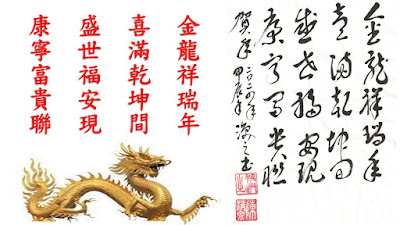 金龍祥瑞年
喜滿乾坤間
盛世福安現
康寧富貴聯
金龍祥瑞年
喜滿乾坤间
盛世福安現
康寧富貴聯
賀年
二〇二四年
甲辰年